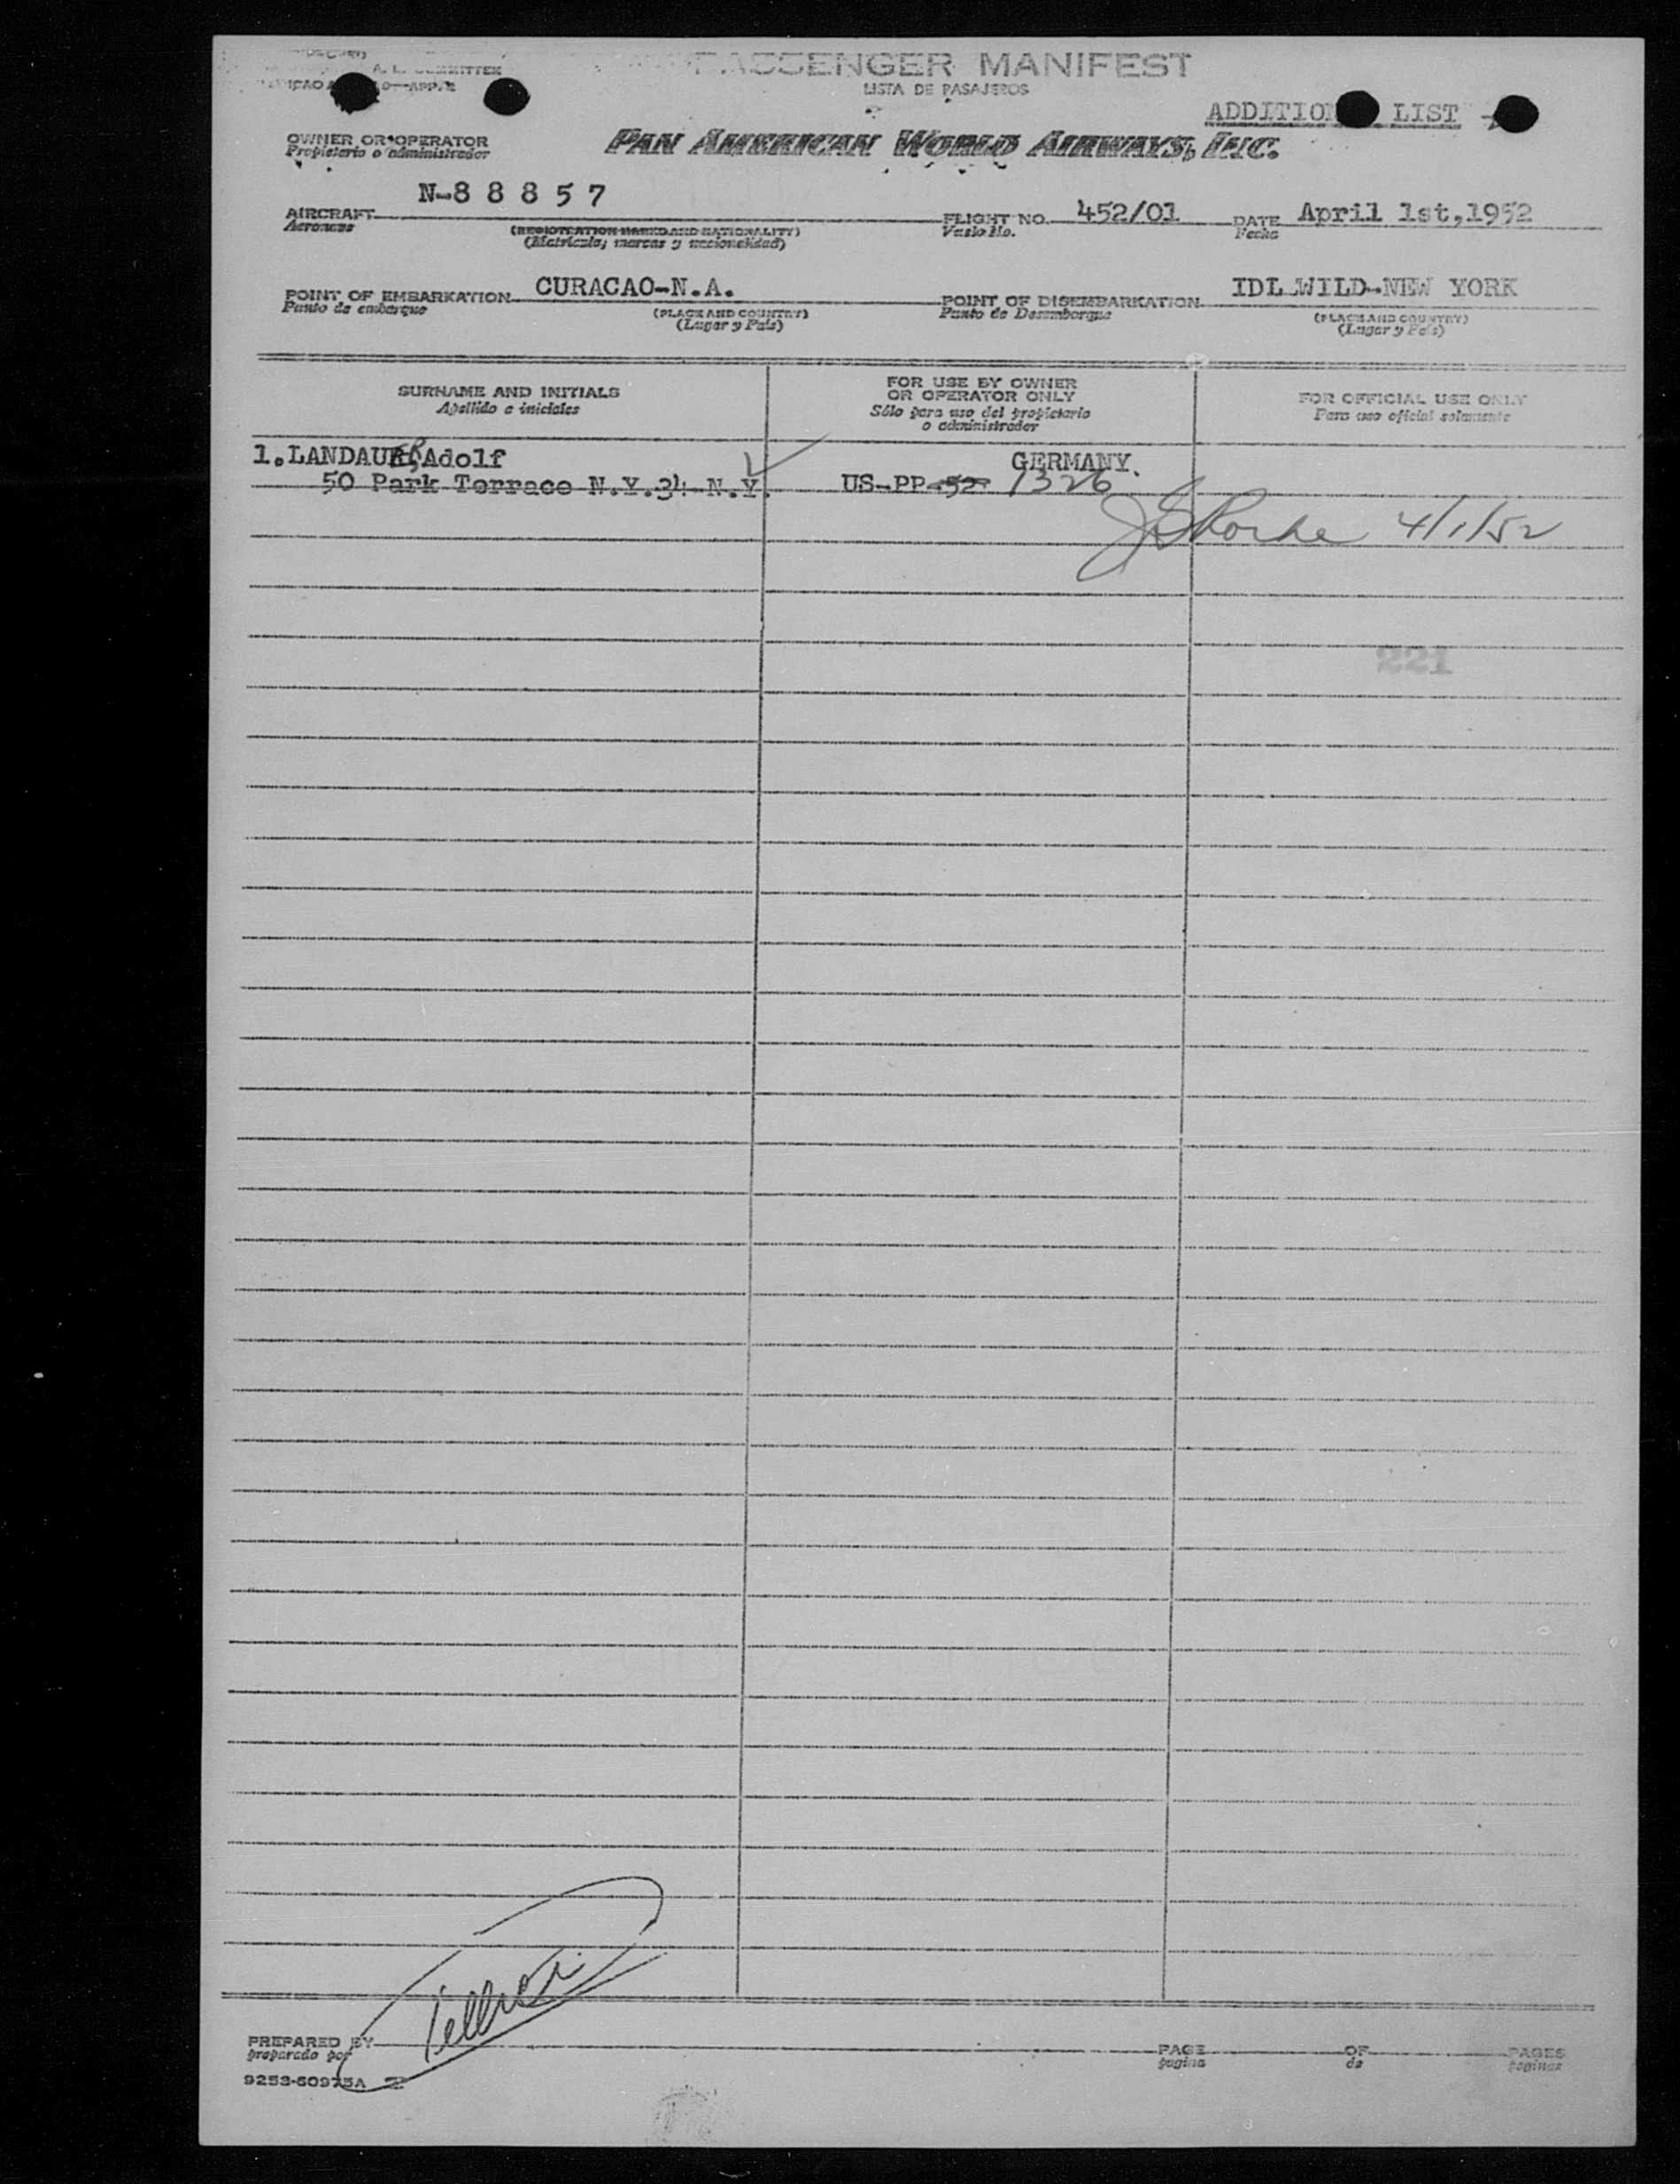 PASSENGER MANIFEST
LISTA DE PASAJEROS
ADDITION LIST
OWNER OR OPERATOR
Propietario o administrador
PAN AMERICAN WORLD AIRWAYS, INC.
AIRCRAFT N-8 8 8 5 7 FLIGHT NO. 452/01 DATE April 1st,1952
Aeronave (REGISTRATION MARKS AND NATIONALITY) Vuelo No. Fecha
(Matrícula, marcas y nacionalidad)
POINT OF EMBARKATION CURACAO-N.A. POINT OF DISEMBARKATION IDL WILD-NEW YORK
Punto de embarque (PLACE AND COUNTRY) Punto de Desembarque (PLACE AND COUNTRY)
(Lugar y País) (Lugar y País)
SURNAME AND INITIALS
Apellido e iniciales
FOR USE BY OWNER
OR OPERATOR ONLY
Sólo para uso del propietario
o administrador
FOR OFFICIAL USE ONLY
Para uso oficial solamente
1.LANDAUER,Adolf GERMANY.
50 Park Terrace N.Y.34 N.Y. US-PP-52- 1326
4/1/52
221
PREPARED BY PAGE OF PAGES
preparado por pagina de paginas
9253-60975A